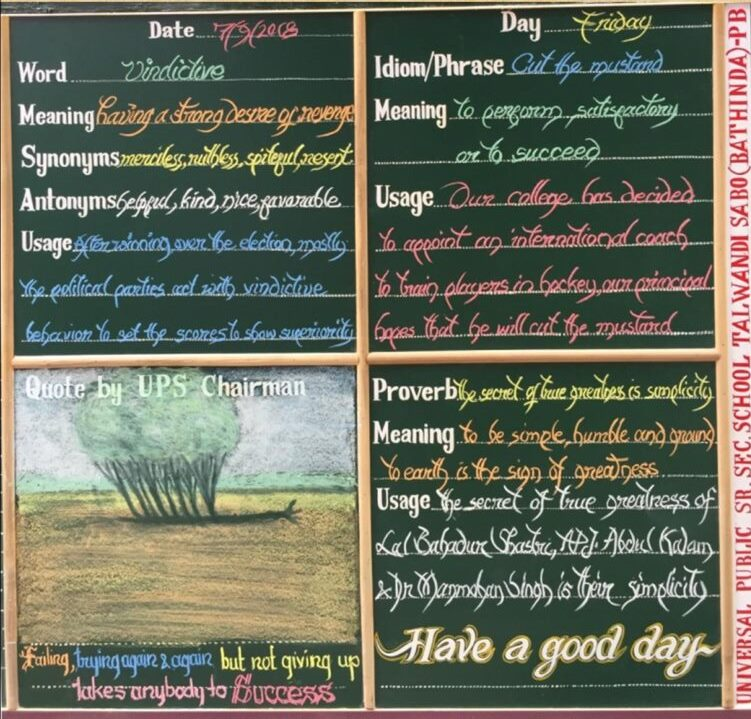 Date 7/9/2018
Word Vindictive
Meaning having a strong desire of revenge
Synonyms merciless, ruthless, spiteful, resent
Antonyms helpful, kind, nice, favarable
Usage After winning over the election, mostly
the political parties act with vindictive
behavior to set the scores to show superiority
Day Friday
Idiom/Phrase Cut the mustard
Meaning to perform satisfactory
or to succeed
Usage Our college has decided
to appoint an international coach
to train players in hockey, our principal
hopes that he will cut the mustard
Quote by UPS Chairman
Failing, trying again & again but not giving up
takes anybody to Success
Proverb the secret of true greatness is simplicity
Meaning to be simple, humble and ground
to earth is the sign of greatness
Usage the secret of true greatness of
Lal Bahadur Shastri, APJ Abdul Kalam
& Dr Manmohan Singh is their simplicity
Have a good day
UNIVERSAL PUBLIC SR. SEC. SCHOOL TALWANDI SABO (BATHINDA)-PB